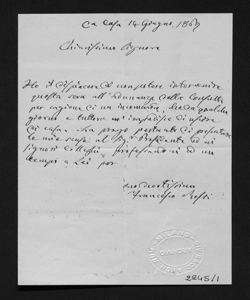 Ca Casa 14 Giugno, 186
Chiarissimo Signore
Ho il dispiacere di non potere intervenire
questa sera all'Adunanza della Consulta
per cagione di un incomodo, che da qualche
giorni e tuttora mi impedisce di uscire
di casa. La prego pertanto di presentare
le mie scuse al Sig. Presidente ed ai
signori colleghi, professandomi ad un
tempo a Lei per
suo devotissimo
Francesco
2845/1